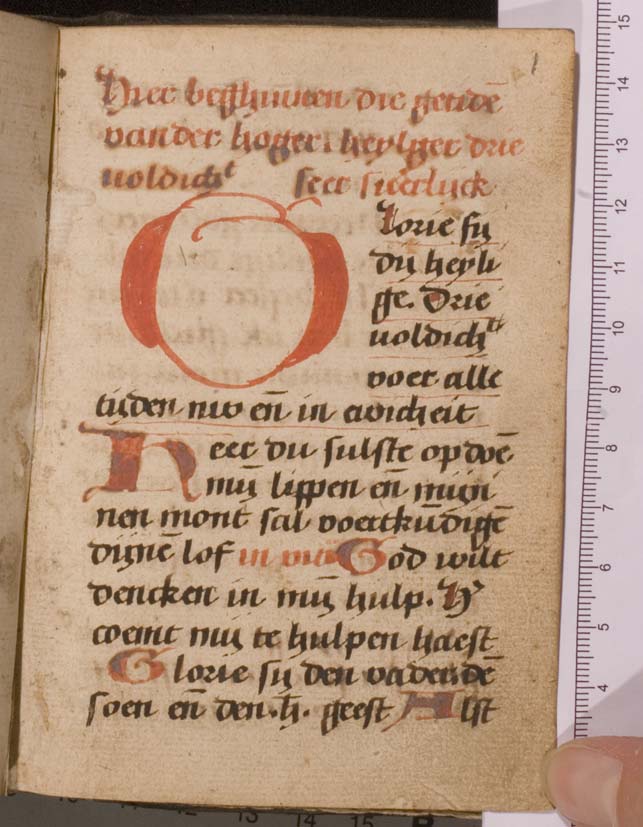 1
Hier beghinnen die getidē
vander hoger heyliger drie
uoldichᵗ seer sierlijck
Glorie sy
dy heyli
ge. Drie
uoldichᵗ
voer alle
tijden nw en̄ in ewicheit
Heer du sulste opdoē
mij̄ lippen en̄ mijn
nen mont sal voertkūdigē
dijnē lof God wilt
dencken in mij̄ hulp. H̓
coemt mij te hulpen haest
Glorie sij den vader dē
soen en̄ den .h̄. geest Alst
15
14
13
12
11
10
9
8
7
6
5
4